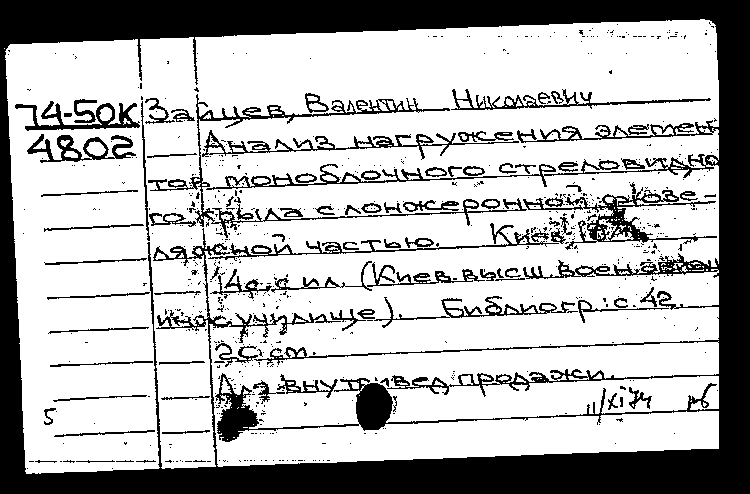 74-50К Зайцев, Валентин Николаевич
4802 Анализ нагружения элемен-
тов моноблочного стреловидно
го крыла с лонжеронной фюзе-
ляжной частью. Киев,
14 с. с ил. (Киев. высш. воен. авиац
училище). Библиогр.: с. 42.
20 см.
Для внутривед. продажи.
5 11/XI 74